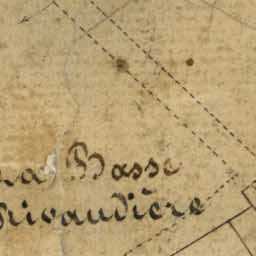 la Basse
Rivaudière